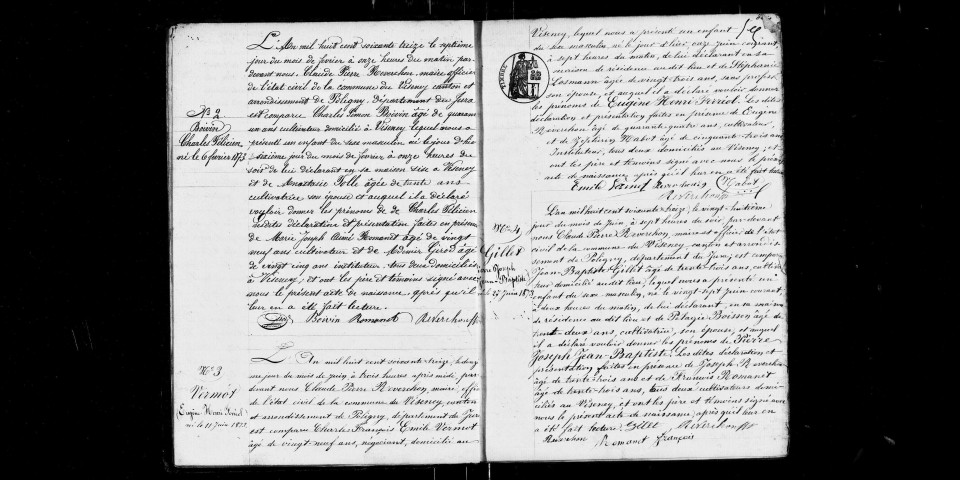 L'An mil huit cent soixante treize le septième
jour du mois de février à onze heures du matin, par
devant nous, Claude Pierre Reverchon, maire officier
de l'état civil de la commune du Viseney canton et
arrondissement de Poligny, département du Jura
est comparu Charles Simon Boivin âgé de quarante
un ans cultivateur domicilié à Viseney lequel nous a
présenté un enfant du sexe masculin né le jour d'hier
sixième jour du mois de février à onze heures du
soir de lui déclarant en sa maison sise à Viseney
et de Anastasie Tolle âgée de trente ans
cultivatrice son épouse et auquel il a déclaré
vouloir donner les prénoms de de Charles Félicien
lesdites déclaration et présentation faites en présence
de Marie Joseph Aimé Romanet âgé de vingt
neuf ans cultivateur et de Girod âgé
de vingt cinq ans instituteur tous deux domiciliés
à Viseney, et ont les père et témoins signé avec
nous le présent acte de naissance, après qu'il
leur en a été fait lecture.
Boivin Romanet Reverchon
No 2
Boivin
Charles Félicien
né le 6 février 1873
L'An mil huit cent soixante-treize, le douziè
me jour du mois de juin, à trois heures après midi, par
devant nous Claude Pierre Reverchon maire, offic
de l'état civil de la commune du Viseney, canton
et arrondissement de Poligny, département du Jura
est comparu Charles François Emile Vermot
âgé de vingt-neuf ans, négociant, domicilié au
No 3
Vermot
Eugène Henri
né le 11 Juin 1873
Viseney, lequel nous a présenté un enfant
du sexe masculin né le jour d'hier, onze juin courant
à sept heures du matin, de lui déclarant en sa
maison de résidence au dit lieu et de Stéphanie
Losmann âgée de vingt trois ans, sans profes
son épouse, et auquel il a déclaré vouloir donner
les prénoms de Eugène Henri. Les dites
déclaration et présentation faites en présence de Eugène
Reverchon âgé de quarante-quatre ans, cultivateur,
et de Zéphirin Mabot âgé de cinquante-trois ans
Instituteur, tous deux domiciliés au Viseney; et
ont les père et témoins signé avec nous le présent
acte de naissance, après qu'il leur en a été fait lecture
Emile Reverchon Mabot
Reverchon
L'an mil huit cent soixante-treize, le vingt-huitième
jour du mois de juin à sept heures du soir, par devant
nous Claude Pierre Reverchon, maire et officier de l'état
civil de la commune du Viseney, canton et arrondis
sement de Poligny, département du Jura, est comparu
Jean-Baptiste Gillet âgé de trente-trois ans, cultiva
teur domicilié au dit lieu, lequel nous a présenté un
enfant du sexe masculin, né le vingt-sept juin courant,
à deux heures du matin, de lui déclarant, en sa maison
de résidence au dit lieu et de Pélagie Boisson âgée de
trente-deux ans, cultivatrice, son épouse, et auquel
il a déclaré vouloir donner les prénoms de Pierre
Joseph Jean-Baptiste. Les dites déclaration et
présentation faites en présence de Joseph Reverchon
âgé de trente-trois ans et de François Romanet
âgé de trente-trois ans, tous deux cultivateurs domi
ciliés au Viseney, et ont les père et témoins signé avec
nous le présent acte de naissance; après qu'il leur en
a été fait lecture. Gillet Reverchon
Reverchon Romanet françois
No 4
Gillet
Pierre Joseph
Jean-Baptiste
né le 27 Juin 1873